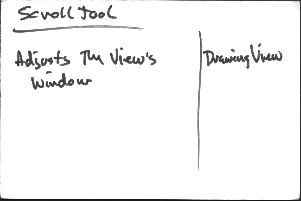 Scroll Tool
Adjusts The View's
Window
DrawingView